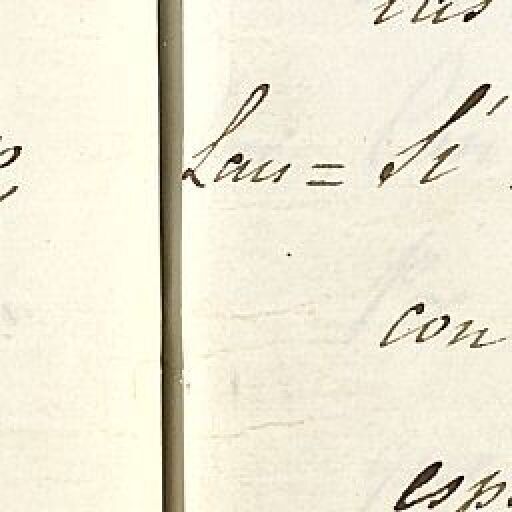 Lau= Si
con
esp